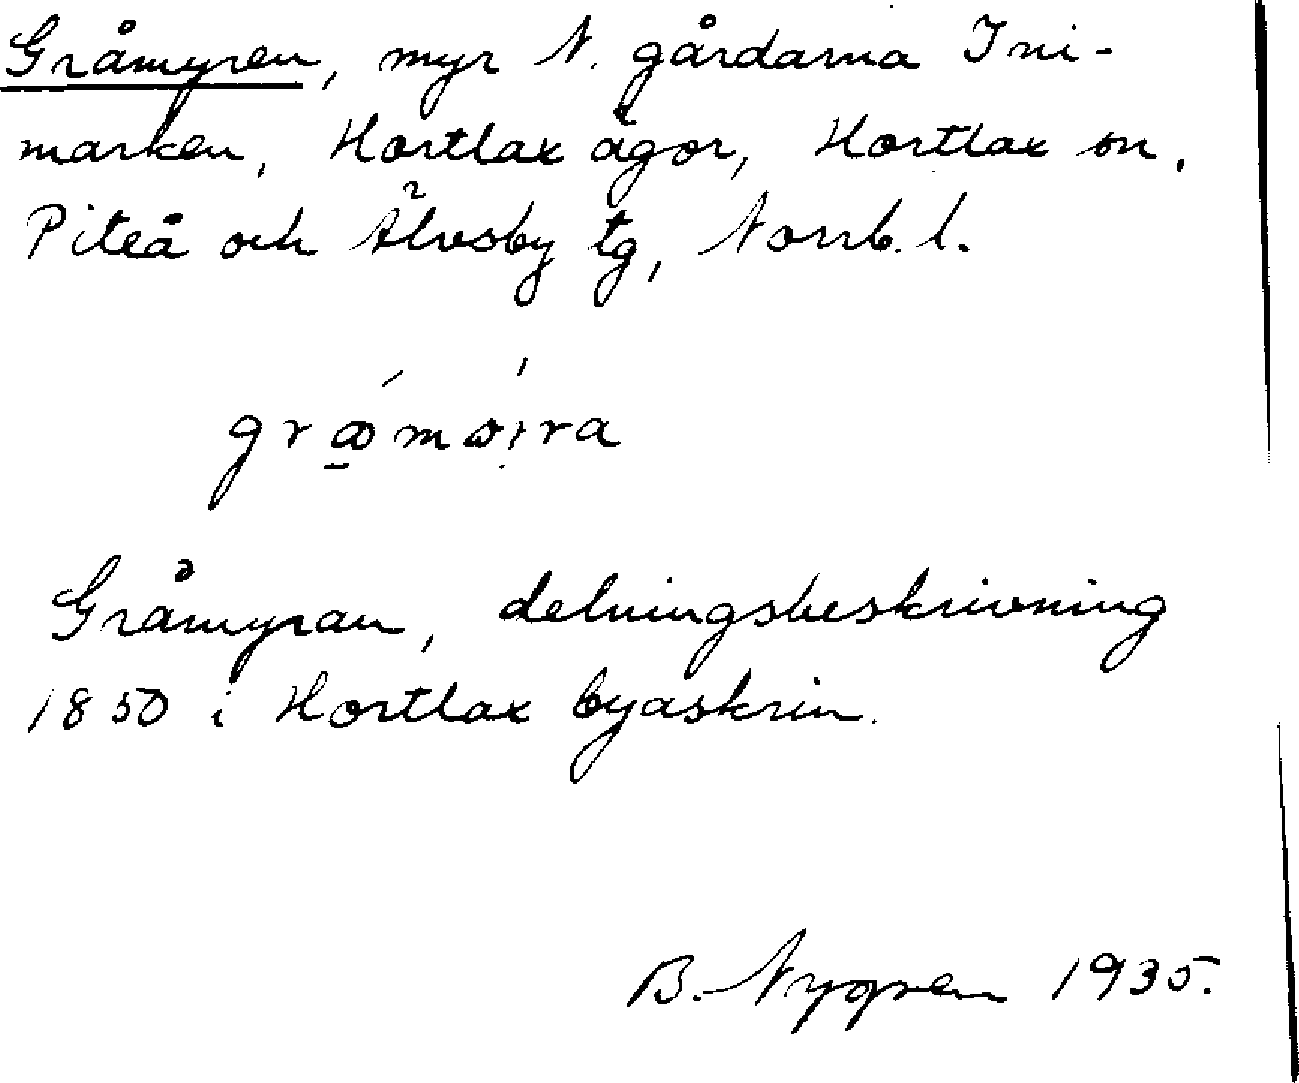 Gråmyren, myr N. gårdarna Ini-
marken, Hortlax ägor, Hortlax sn,
Piteå och Älvsby tg, Norrb. l.
Gråmyran, delningsbeskrivning
1850 i Hortlax byaskrin.
B. Nygren 1935.